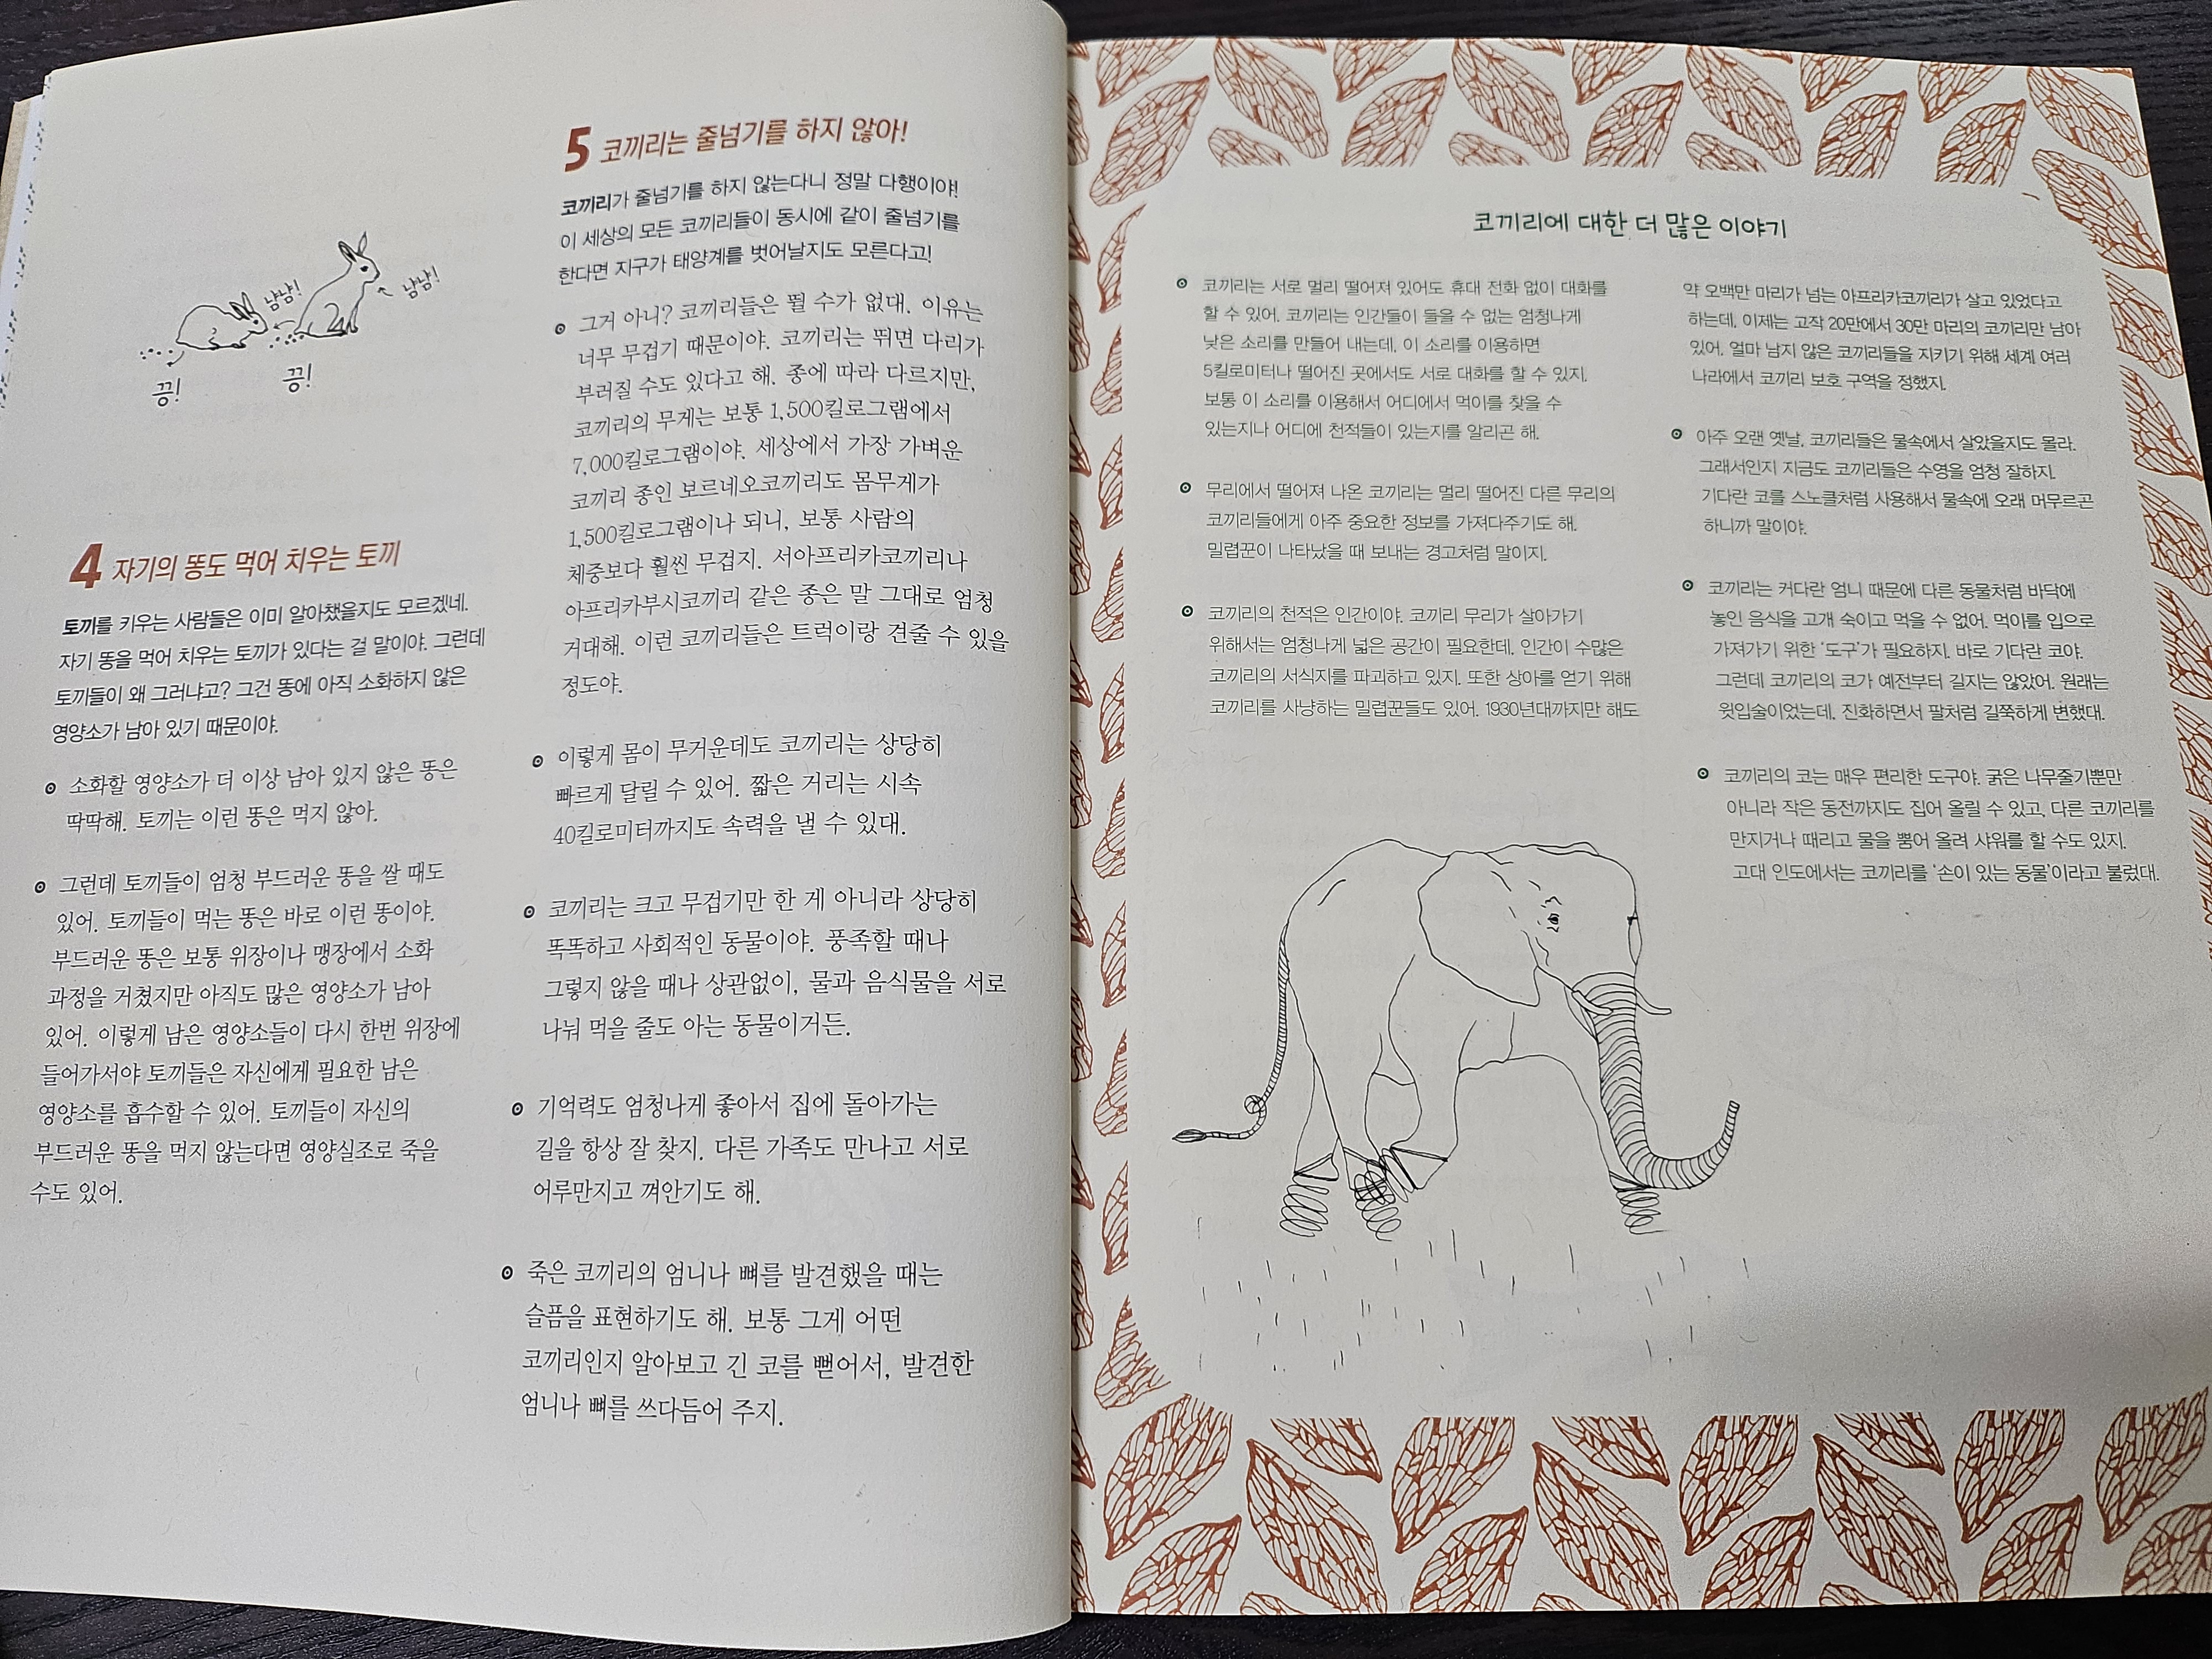 냠냠!
냠냠!
끙!
끙!
4 자기의 똥도 먹어 치우는 토끼
토끼를 키우는 사람들은 이미 알아챘을지도 모르겠네.
자기 똥을 먹어 치우는 토끼가 있다는 걸 말이야. 그런데
토끼들이 왜 그러냐고? 그건 똥에 아직 소화하지 않은
영양소가 남아 있기 때문이야.
소화할 영양소가 더 이상 남아 있지 않은 똥은
딱딱해. 토끼는 이런 똥은 먹지 않아.
그런데 토끼들이 엄청 부드러운 똥을 쌀 때도
있어. 토끼들이 먹는 똥은 바로 이런 똥이야.
부드러운 똥은 보통 위장이나 맹장에서 소화
과정을 거쳤지만 아직도 많은 영양소가 남아
있어. 이렇게 남은 영양소들이 다시 한번 위장에
들어가서야 토끼들은 자신에게 필요한 남은
영양소를 흡수할 수 있어. 토끼들이 자신의
부드러운 똥을 먹지 않는다면 영양실조로 죽을
수도 있어.
5 코끼리는 줄넘기를 하지 않아!
코끼리가 줄넘기를 하지 않는다니 정말 다행이야!
이 세상의 모든 코끼리들이 동시에 같이 줄넘기를
한다면 지구가 태양계를 벗어날지도 모른다고!
그거 아니? 코끼리들은 뛸 수가 없대. 이유는
너무 무겁기 때문이야. 코끼리는 뛰면 다리가
부러질 수도 있다고 해. 종에 따라 다르지만,
코끼리의 무게는 보통 1,500킬로그램에서
7,000킬로그램이야. 세상에서 가장 가벼운
코끼리 종인 보르네오코끼리도 몸무게가
1,500킬로그램이나 되니, 보통 사람의
체중보다 훨씬 무겁지. 서아프리카코끼리나
아프리카부시코끼리 같은 종은 말 그대로 엄청
거대해. 이런 코끼리들은 트럭이랑 견줄 수 있을
정도야.
이렇게 몸이 무거운데도 코끼리는 상당히
빠르게 달릴 수 있어. 짧은 거리는 시속
40킬로미터까지도 속력을 낼 수 있대.
코끼리는 크고 무겁기만 한 게 아니라 상당히
똑똑하고 사회적인 동물이야. 풍족할 때나
그렇지 않을 때나 상관없이, 물과 음식물을 서로
나눠 먹을 줄도 아는 동물이거든.
기억력도 엄청나게 좋아서 집에 돌아가는
길을 항상 잘 찾지. 다른 가족도 만나고 서로
어루만지고 껴안기도 해.
죽은 코끼리의 엄니나 뼈를 발견했을 때는
슬픔을 표현하기도 해. 보통 그게 어떤
코끼리인지 알아보고 긴 코를 뻗어서, 발견한
엄니나 뼈를 쓰다듬어 주지.
코끼리에 대한 더 많은 이야기
코끼리는 서로 멀리 떨어져 있어도 휴대 전화 없이 대화를
할 수 있어. 코끼리는 인간들이 들을 수 없는 엄청나게
낮은 소리를 만들어 내는데, 이 소리를 이용하면
5킬로미터나 떨어진 곳에서도 서로 대화를 할 수 있지.
보통 이 소리를 이용해서 어디에서 먹이를 찾을 수
있는지나 어디에 천적들이 있는지를 알리곤 해.
무리에서 떨어져 나온 코끼리는 멀리 떨어진 다른 무리의
코끼리들에게 아주 중요한 정보를 가져다주기도 해.
밀렵꾼이 나타났을 때 보내는 경고처럼 말이지.
코끼리의 천적은 인간이야. 코끼리 무리가 살아가기
위해서는 엄청나게 넓은 공간이 필요한데, 인간이 수많은
코끼리의 서식지를 파괴하고 있지. 또한 상아를 얻기 위해
코끼리를 사냥하는 밀렵꾼들도 있어. 1930년대까지만 해도
약 오백만 마리가 넘는 아프리카코끼리가 살고 있었다고
하는데, 이제는 고작 20만에서 30만 마리의 코끼리만 남아
있어. 얼마 남지 않은 코끼리들을 지키기 위해 세계 여러
나라에서 코끼리 보호 구역을 정했지.
아주 오랜 옛날, 코끼리들은 물속에서 살았을지도 몰라.
그래서인지 지금도 코끼리들은 수영을 엄청 잘하지.
기다란 코를 스노클처럼 사용해서 물속에 오래 머무르곤
하니까 말이야.
코끼리는 커다란 엄니 때문에 다른 동물처럼 바닥에
놓인 음식을 고개 숙이고 먹을 수 없어. 먹이를 입으로
가져가기 위한 '도구'가 필요하지. 바로 기다란 코야.
그런데 코끼리의 코가 예전부터 길지는 않았어. 원래는
윗입술이었는데, 진화하면서 팔처럼 길쭉하게 변했대.
코끼리의 코는 매우 편리한 도구야. 굵은 나무줄기뿐만
아니라 작은 동전까지도 집어 올릴 수 있고, 다른 코끼리를
만지거나 때리고 물을 뿜어 올려 샤워를 할 수도 있지.
고대 인도에서는 코끼리를 '손이 있는 동물'이라고 불렀대.